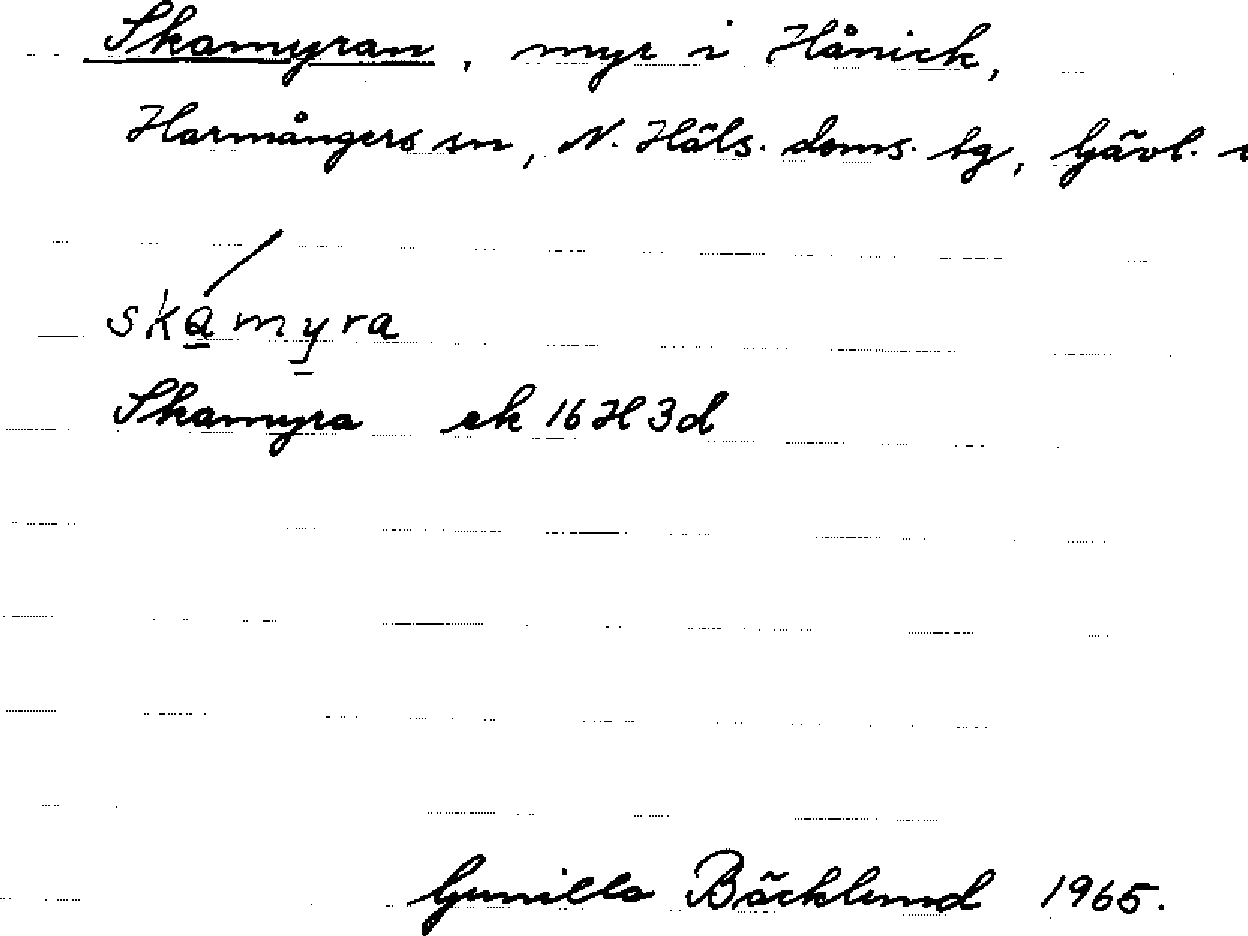 Skamyran, myr i Hånick,
Harmångers sn, N. Häls. doms. tg, Gävl.
skamyra
Skamyra ek 16 H 3d
Gunilla Bäcklund 1965.